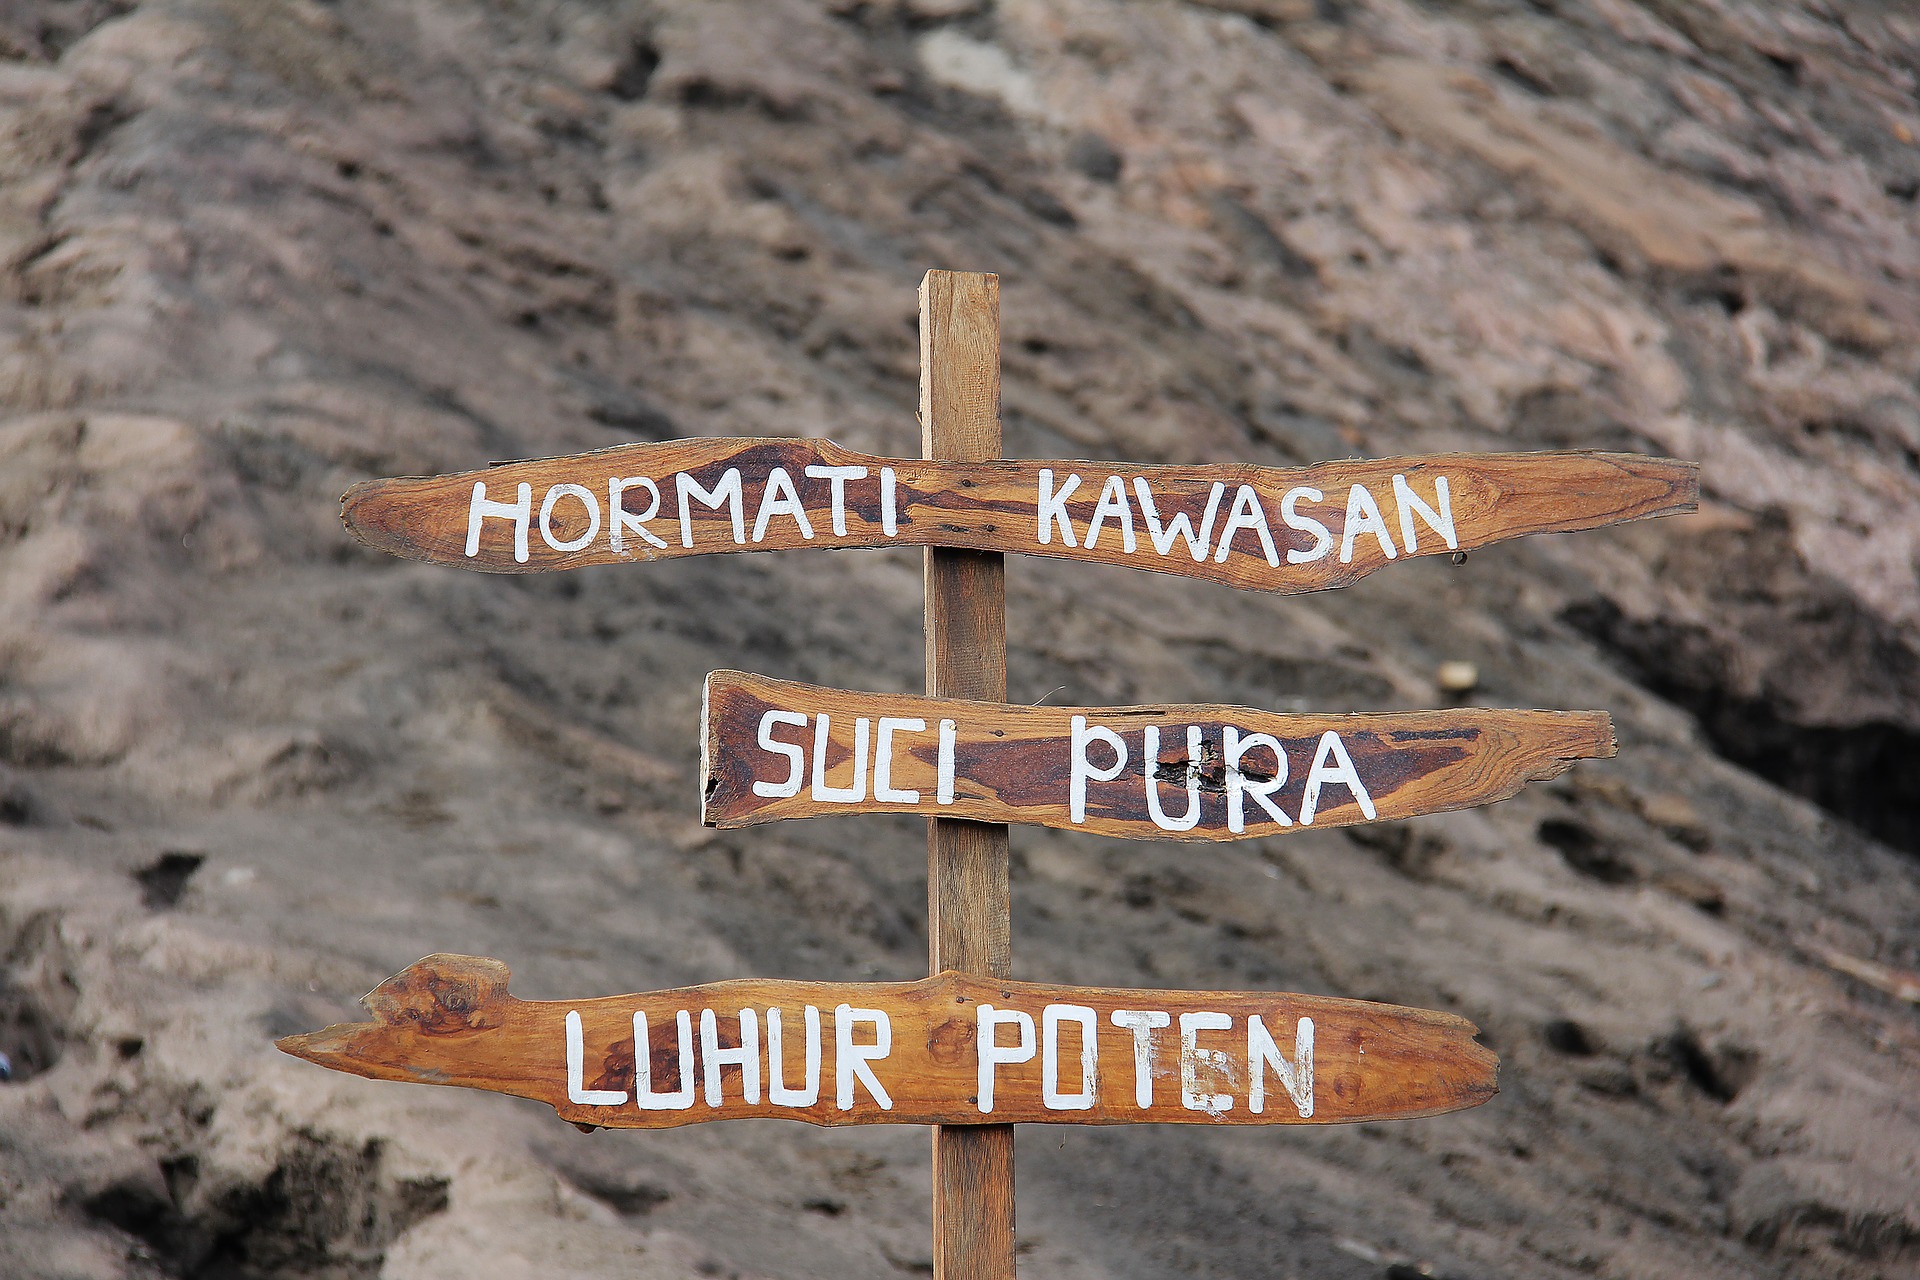 HORMATI KAWASAN
SUCI PURA
LUHUR POTEN